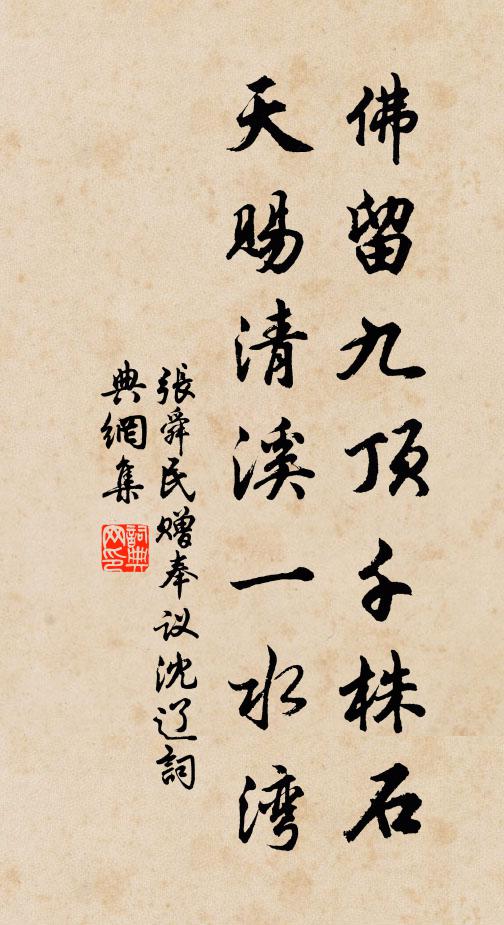 佛留九顶千株石
天赐清溪一水湾
張舜民赠奉议沈辽詞
典網集
詞典
网印